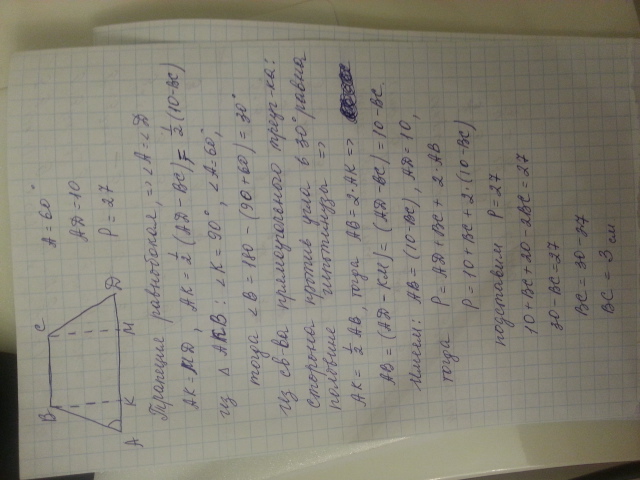 B C
A K M D
A = 60°
AD = 10
P = 27
Трапеция равнобокая, => ∠A = ∠D
AK = MD, AK = 1/2 (AD - BC) = 1/2 (10 - BC)
из △ AKB : ∠K = 90°, ∠A = 60°,
тогда ∠B = 180 - (90 + 60) = 30°
из св-ва прямоугольного треуг-ка:
сторона против угла в 30° равна
половине гипотенузы =>
AK = 1/2 AB, тогда AB = 2·AK =>
AB = (AD - KM) = (AD - BC) = 10 - BC.
Имеем: AB = (10 - BC), AD = 10,
тогда P = AD + BC + 2·AB
P = 10 + BC + 2·(10 - BC)
подставим P = 27
10 + BC + 20 - 2BC = 27
30 - BC = 27
BC = 30 - 27
BC = 3 см